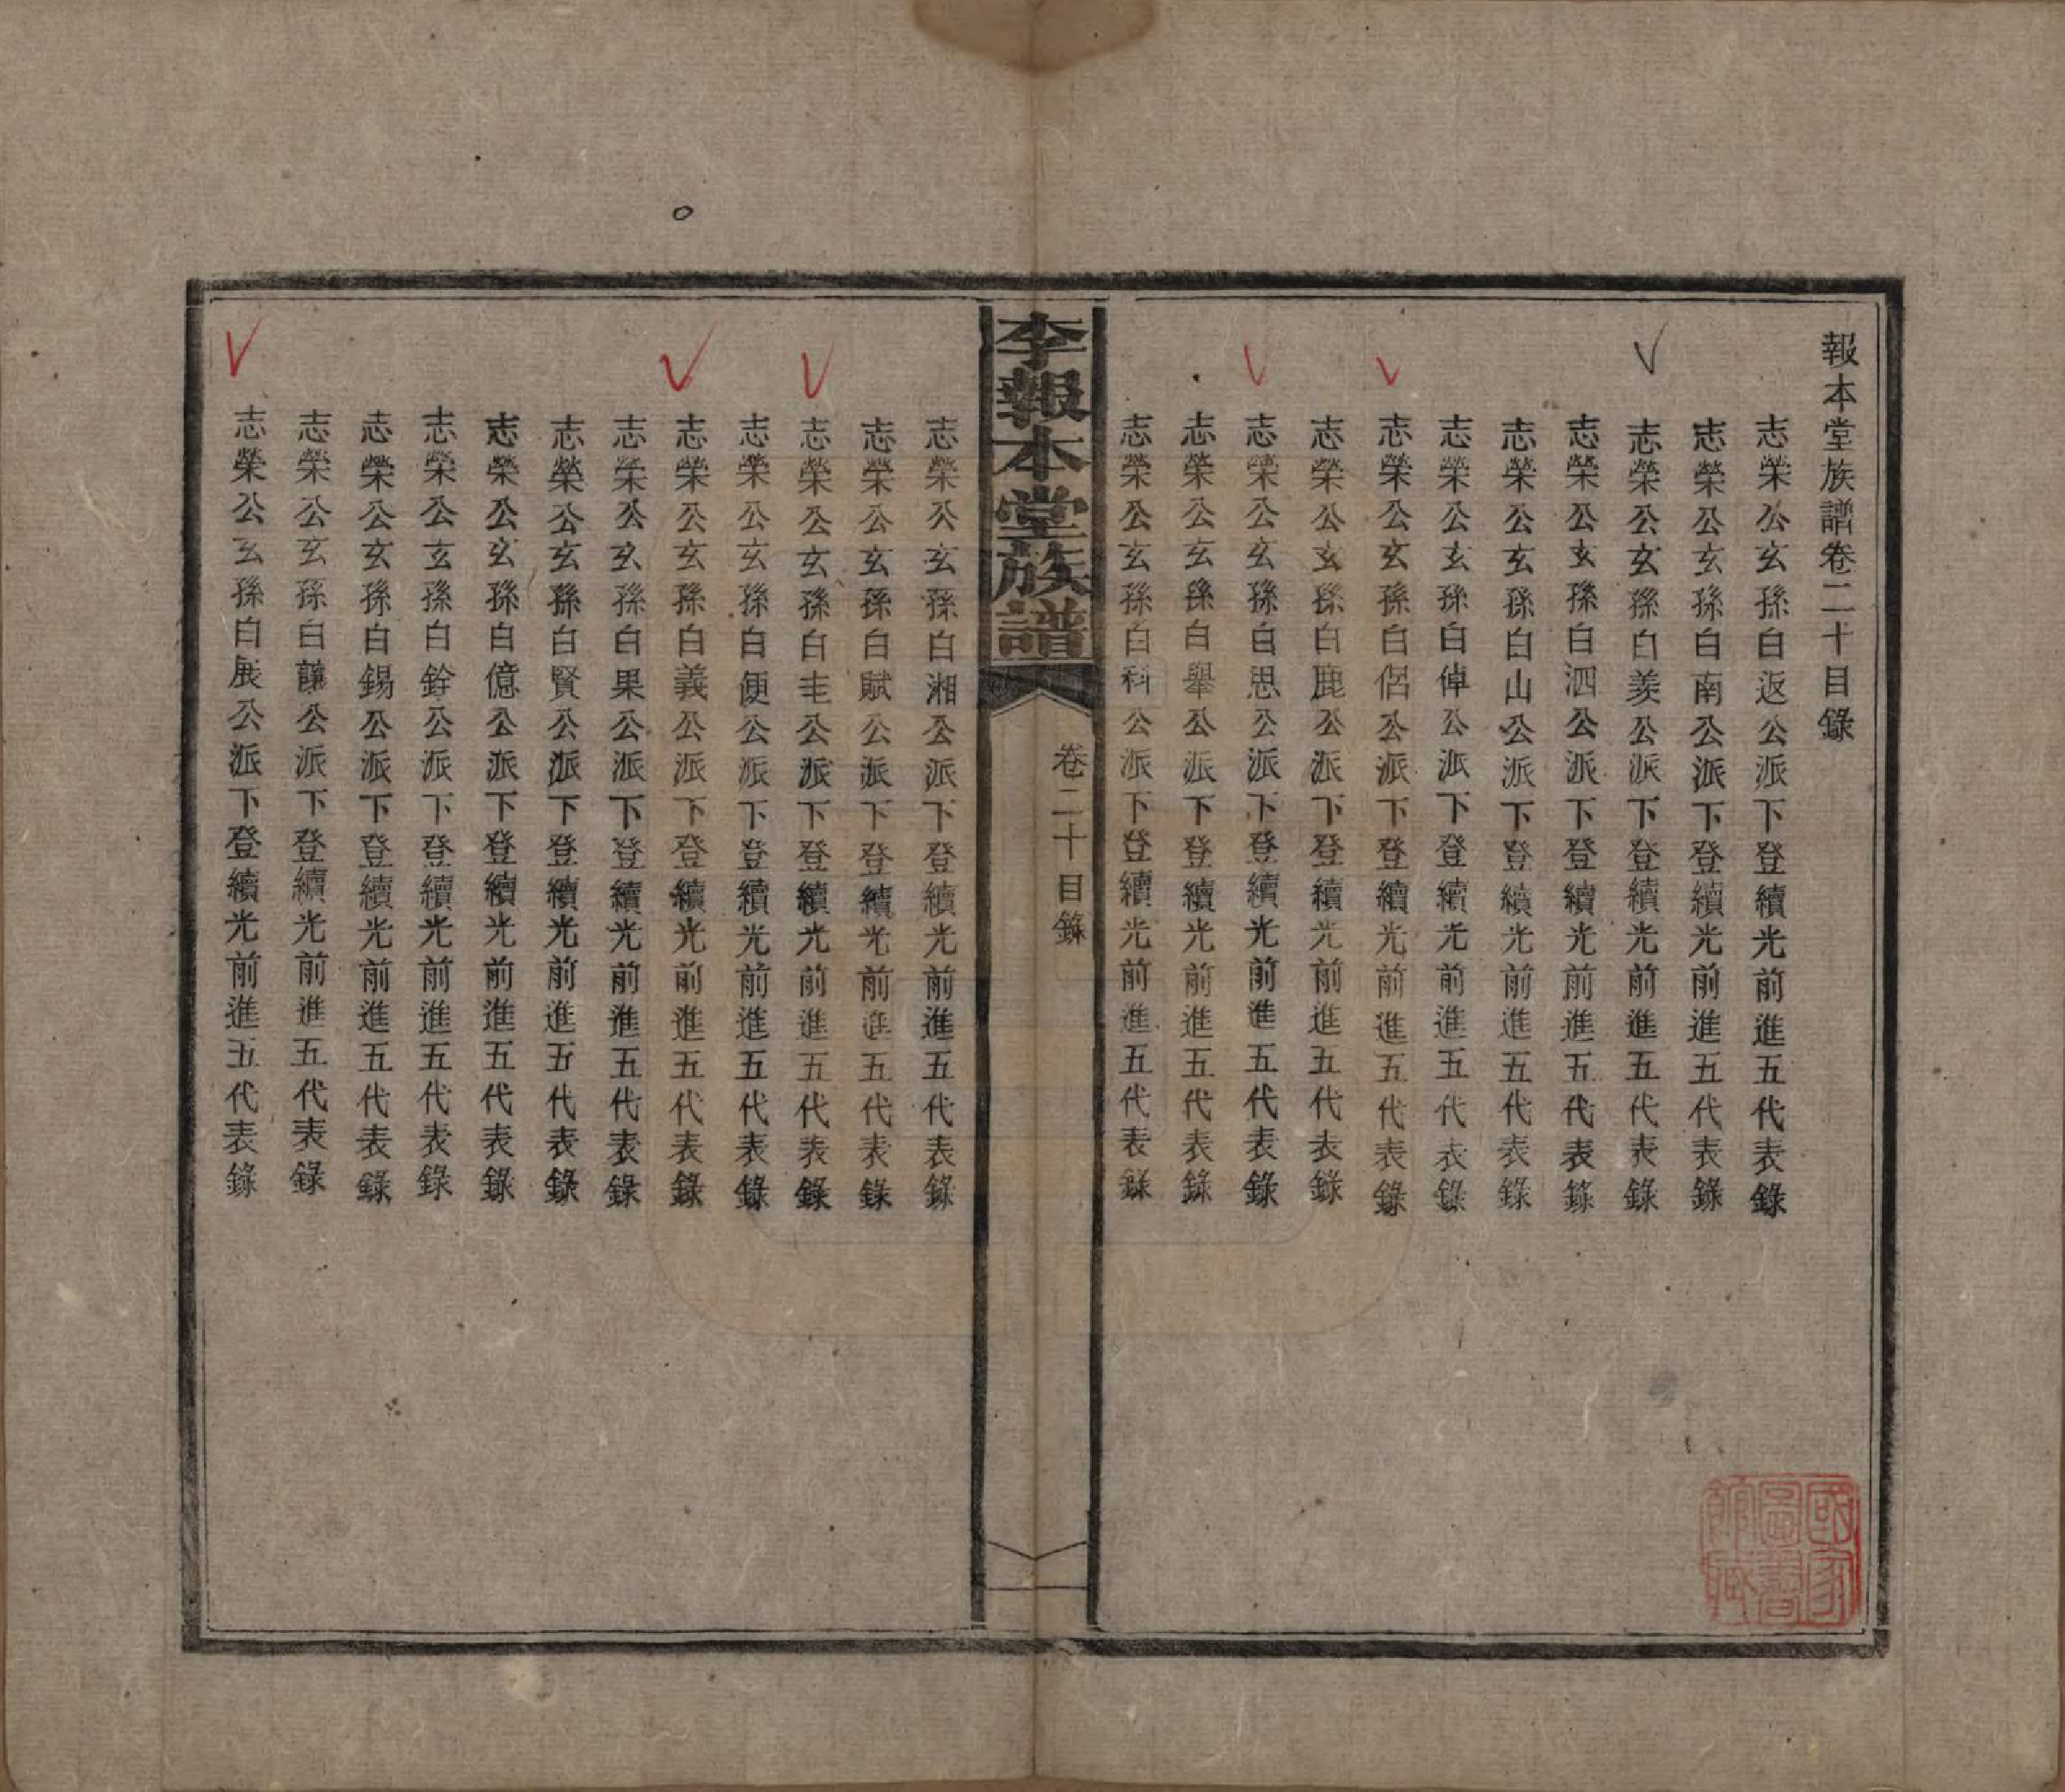 報本堂族譜卷二十目錄
志榮公玄孫白返公派下登續光前進五代表錄
志榮公玄孫白南公派下登續光前進五代表錄
志榮公玄孫白羨公派下登續光前進五代表錄
志榮公玄孫白泗公派下登續光前進五代表錄
志榮公玄孫白山公派下登續光前進五代表錄
志榮公玄孫白倬公派下登續光前進五代表錄
志榮公玄孫白侶公派下登續光前進五代表錄
志榮公玄孫白鹿公派下登續光前進五代表錄
志榮公玄孫白思公派下登續光前進五代表錄
志榮公玄孫白舉公派下登續光前進五代表錄
志榮公玄孫白科公派下登續光前進五代表錄
李報本堂族譜
卷二十目錄
志榮公玄孫白湘公派下登續光前進五代表錄
志榮公玄孫白賦公派下登續光前進五代表錄
志榮公玄孫白圭公派下登續光前進五代表錄
志榮公玄孫白便公派下登續光前進五代表錄
志榮公玄孫白義公派下登續光前進五代表錄
志榮公玄孫白果公派下登續光前進五代表錄
志榮公玄孫白賢公派下登續光前進五代表錄
志榮公玄孫白億公派下登續光前進五代表錄
志榮公玄孫白銓公派下登續光前進五代表錄
志榮公玄孫白錫公派下登續光前進五代表錄
志榮公玄孫白儀公派下登續光前進五代表錄
志榮公玄孫白展公派下登續光前進五代表錄
國家圖書館藏